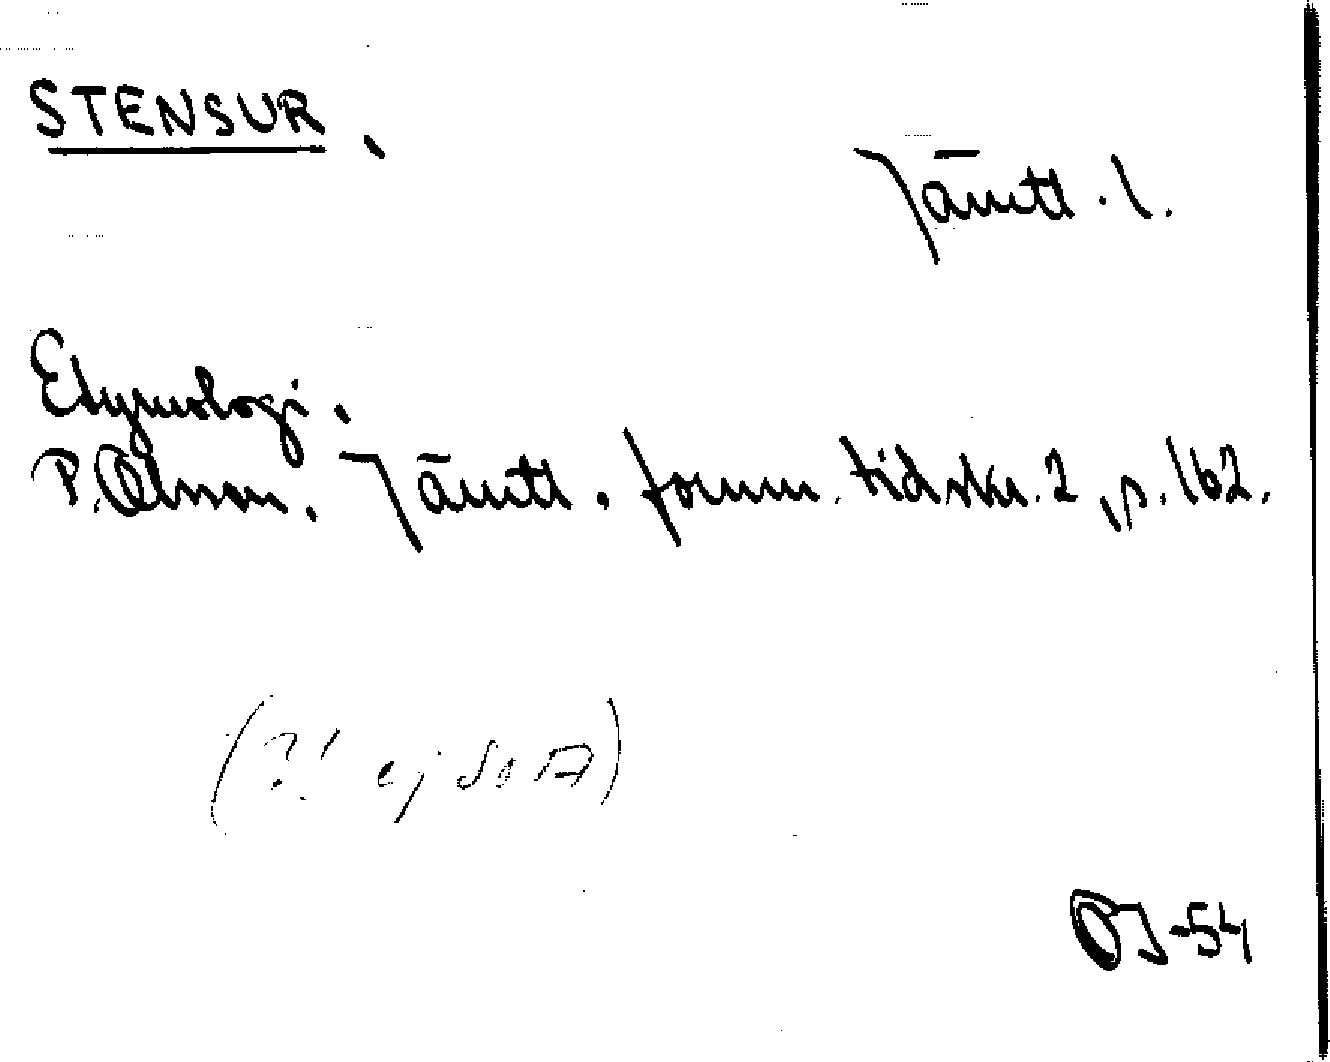 STENSUR.
Jämtl. l.
Etymologi.
P. Olsson. Jämtl. fornm. tidskr. 2, p. 162.
(?! ej SOA)
OJ-54